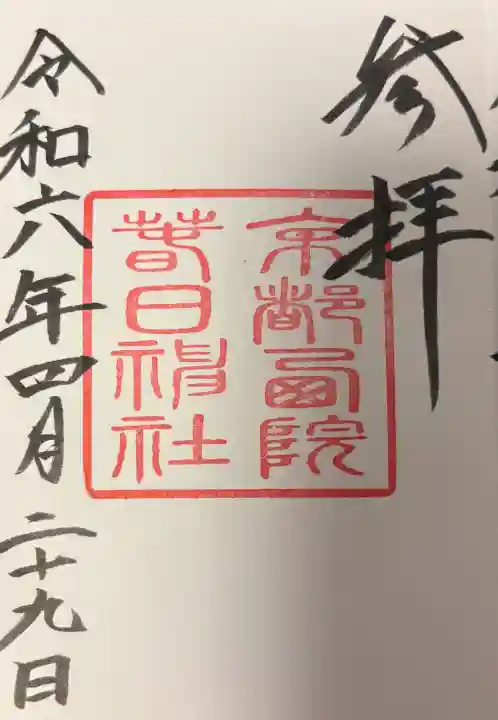 参拝
京都西院
春日神社
令和六年四月二十九日